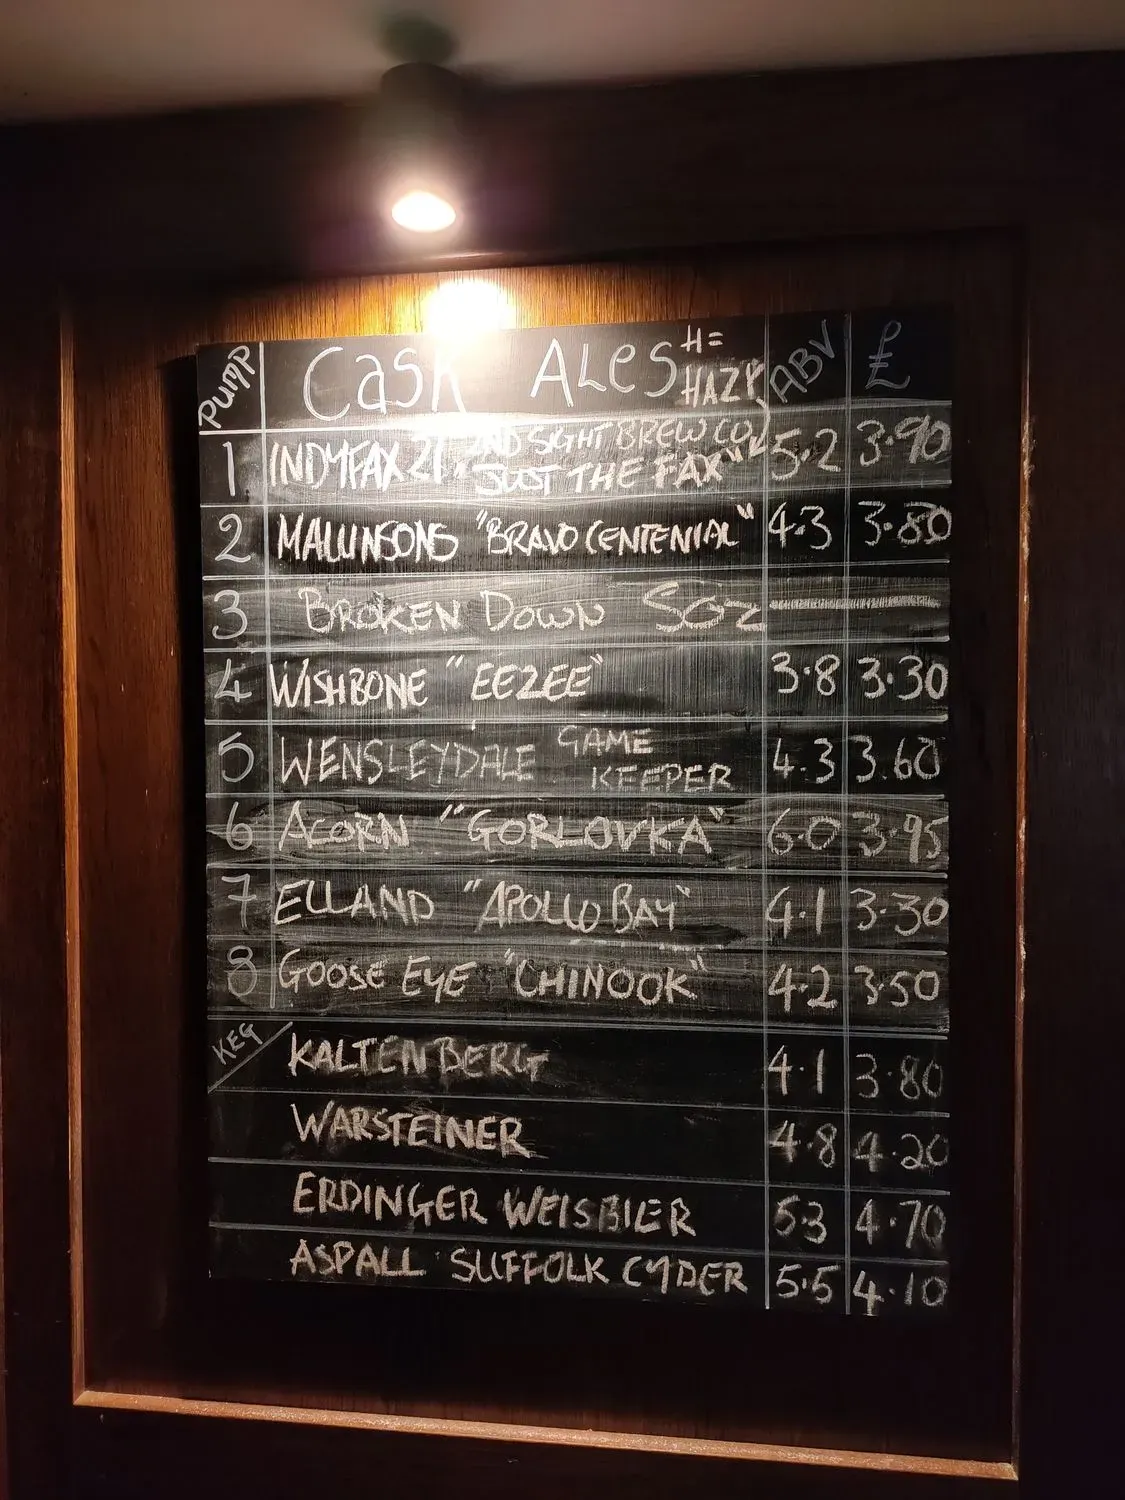 PUMP Cask ALES H= HAZY ABV £
1 INDYFAX 21, 2ND SIGHT BREW CO 5.2 3.90
"JUST THE FAX"
2 MALLINSONS "BRAVO CENTENIAL" 4.3 3.80
3 BROKEN DOWN SOZ
4 WISHBONE "EEZEE" 3.8 3.30
5 WENSLEYDALE GAME KEEPER 4.3 3.60
6 ACORN "GORLOVKA" 6.0 3.95
7 ELLAND "APOLLO BAY" 4.1 3.30
8 GOOSE EYE "CHINOOK" 4.2 3.50
KEG KALTENBERG 4.1 3.80
WARSTEINER 4.8 4.20
ERDINGER WEISBIER 5.3 4.70
ASPALL SUFFOLK CYDER 5.5 4.10